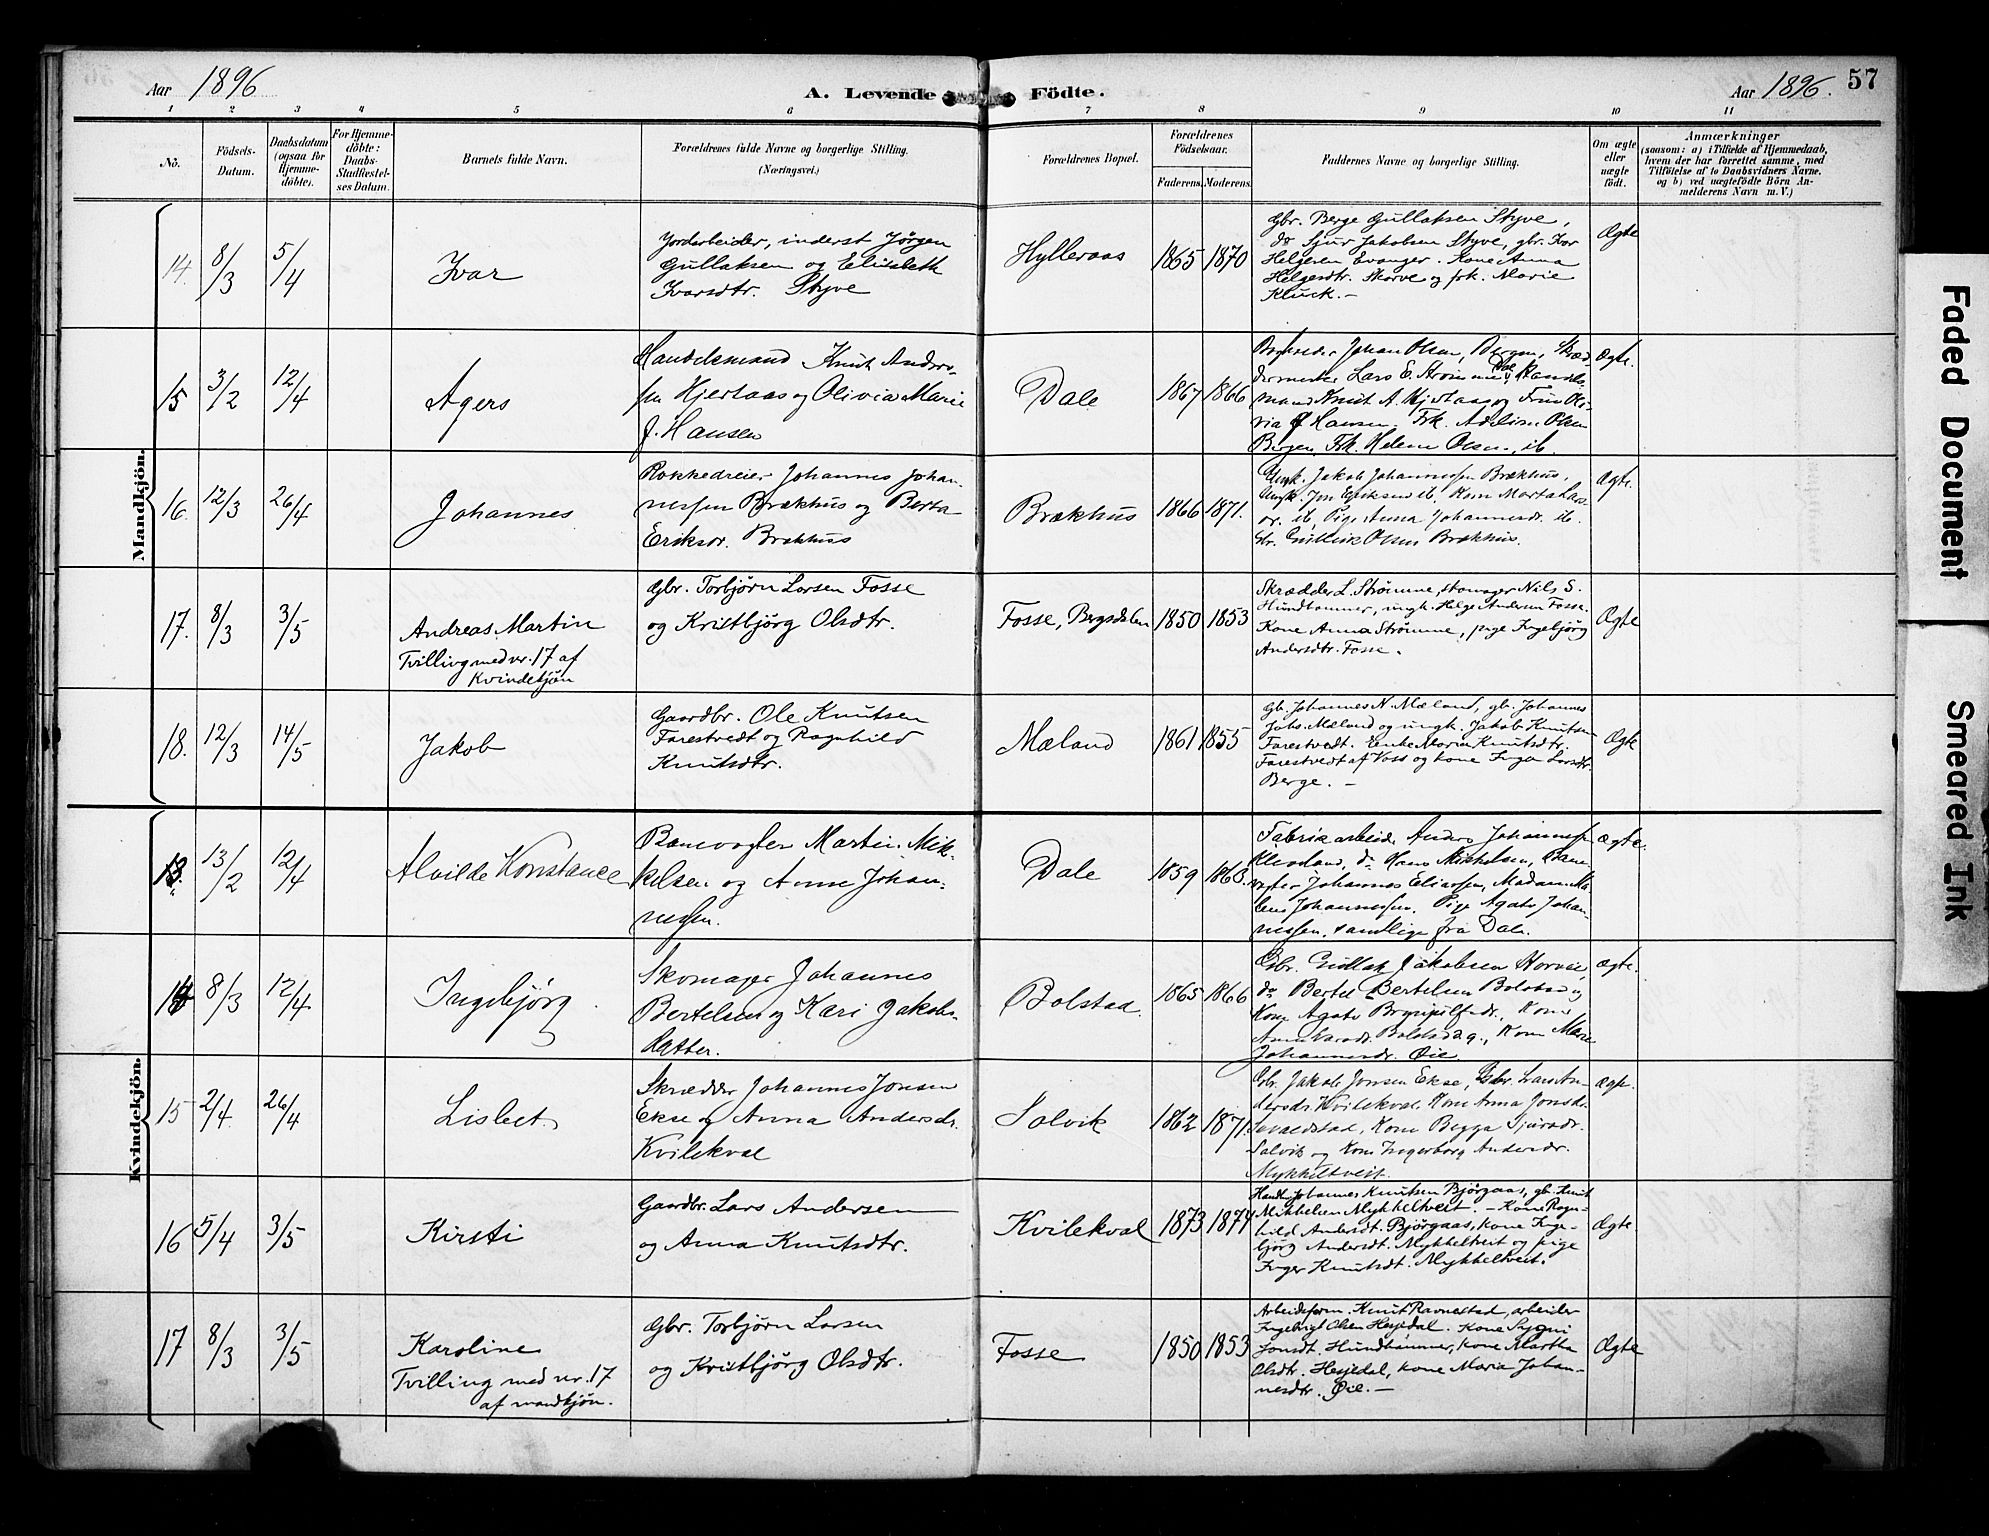 Aar 1896
A. Levende Födte.
Aar 1896. 57
1 2 3 4 5 6 7 8 9 10 11
No.
Födsels-
Datum.
Daabsdatum
(ogsaa for
Hjemme-
döbte).
For Hjemme-
döbte:
Daabs-
Stadfæstel-
ses Datum.
Barnets fulde Navn.
Forældrenes fulde Navne og borgerlige Stilling.
(Næringsvei.)
Forældrenes Bopæl.
Forældrenes
Födselsaar.
Faderens. Moderens.
Faddernes Navne og borgerlige Stilling.
Om ægte
eller
uægte
födt.
Anmærkninger
(saasom: a) i Tilfælde af Hjemmedaab,
hvem der har forrettet samme, med
Tilföielse af to Daabsvidners Navne,
og b) ved uægtefödte Börn An-
melderens Navn m. V.)
Mandkjön.
14. 8/3 5/4 Ivar
Jordarbeider, inderst Jørgen
Gullaksen og Elisabeth
Ivarsdtr. Styve
Hylleraas 1865 1870
Gbr. Berge Gullaksen Styve,
do Sjur Jakobsen Styve, gbr. Ivar
Helgesen Evanger. Kone Anna
Helgesdtr. Skorve og frk. Marie
Kluck.-
Ægte
15 3/2 12/4 Agers
Handelsmand Knut Anders-
sen Hjertaas og Olivia Marie
J. Hansen
Dale 1867 1866
Johan Olsen, Bergen, Skræd-
dermester Lars E. Strømme, Dale, Handels-
mand Knut A. Hjertaas og Fru Oli-
via J Hansen. Frk. Olsen
Bergen. Frk. Helene Olsen, ib.
Ægte.
16. 12/3 26/4 Johannes
Rokkedreier Johannes Johan-
nessen Brækhus og Berta
Eriksdr. Brækhus
Brækhus 1866 1871.
Ungk. Jakob Johannessen Brækhus,
Ungk. Jon Eriksen ib, Kone Marta Lars-
dr. ib, Pige Anna Johannesdr. ib.
Gbr. Olsen Brækhus.
Ægte.
17. 8/3 3/5 Andreas Martin
Tvilling med nr. 17 af
Kvindekjön
Gbr. Torbjørn Larsen Fosse
og Kristbjörg Olsdtr.
Fosse, Bergsdalen 1850 1853
Skrædder L. Strømme, skomager Nils S.
Hundhammer, ungk. Helge Andersen Fosse.
Kone Anna Strømme, pige Ingebjörg
Andersdtr. Fosse.
Ægte
18. 12/3 14/5 Jakob
Gaardbr. Ole Knutsen
Farestvedt og Ragnhild
Knutsdtr.
Mæland 1861 1855
Gb. Johannes N. Mæland, gb. Johannes
Johs. Mæland og ungk. Jakob Knutsen
Farestvedt. Enke Maria Knutsdtr.
Farestvedt af Voss og kone Inga Larsdtr.
Berge. -
Ægte
Kvindekjön.
13. 13/2 12/4 Alvilde Konstance
Banevogter Martin Mik-
kelsen og Anne Johan-
nessen.
Dale 1859 1863.
Fabrikarbeid. Anders Johannessen
do Hans Mikkelsen, Bane-
vogter Johannes Eliassen, Madam Ma-
lene Johannessen. Pige Agate Johan-
nessen, samtlige fra Dale.
ægte.
14 8/3 12/4 Ingebjørg
Skomager Johannes
Bertelsen og Kari Jakobs-
datter.
Bolstad. 1865 1866
Gbr. Jakobsen Horvei,
do Bertel Bertelsen Bolstad og
Kone Agate Kone
Anna Bolstad g., Kone Marie
Johannesdr. Øie
ægte.
15 2/4. 26/4 Lisbet.
Skrædder Johannes Jonsen
Ekse og Anna Andersdr.
Kvilekval
Salvik 1862 1871.
Gbr. Jakob Jonsen Ekse, Gbr. Lars An-
Kvilekval. Kone Anna Jonsdr.
Kone Begga Sjursdr.
Salvik og Kone Ingeborg Andersdr.
Mykkeltveit.
ægte.
16 5/4 3/5 Kirsti
Gaardbr. Lars Andersen
og Anna Knutsdtr.
Kvilekval 1873 1874
Johannes Knutsen Bjørgaas, gb. Knut
Mikkelsen Mykkeltveit. - Kone Ragn-
hild Andersdt. Bjørgaas, kone Inge-
björg Andersdt. Mykkeltveit og pige
Inger Knutsdt. Mykkeltveit.
Ægte
17 8/3 3/5 Karoline
Tvilling med nr. 17
af mandkjön.
Gbr. Torbjørn Larsen
og Kristbjörg Olsdtr.
Fosse 1850 1853
Arbeidsform. Knut Ravnestad, arbeider
Ingebrigt Olsen Hesjedal. Kone Sygni
Jonsdt. Hundhammer, kone Martha
Olsdtr. Hesjedal, kone Maria Johan-
nesdtr. Øie.-
Ægte
Faded Document
Smeared Ink